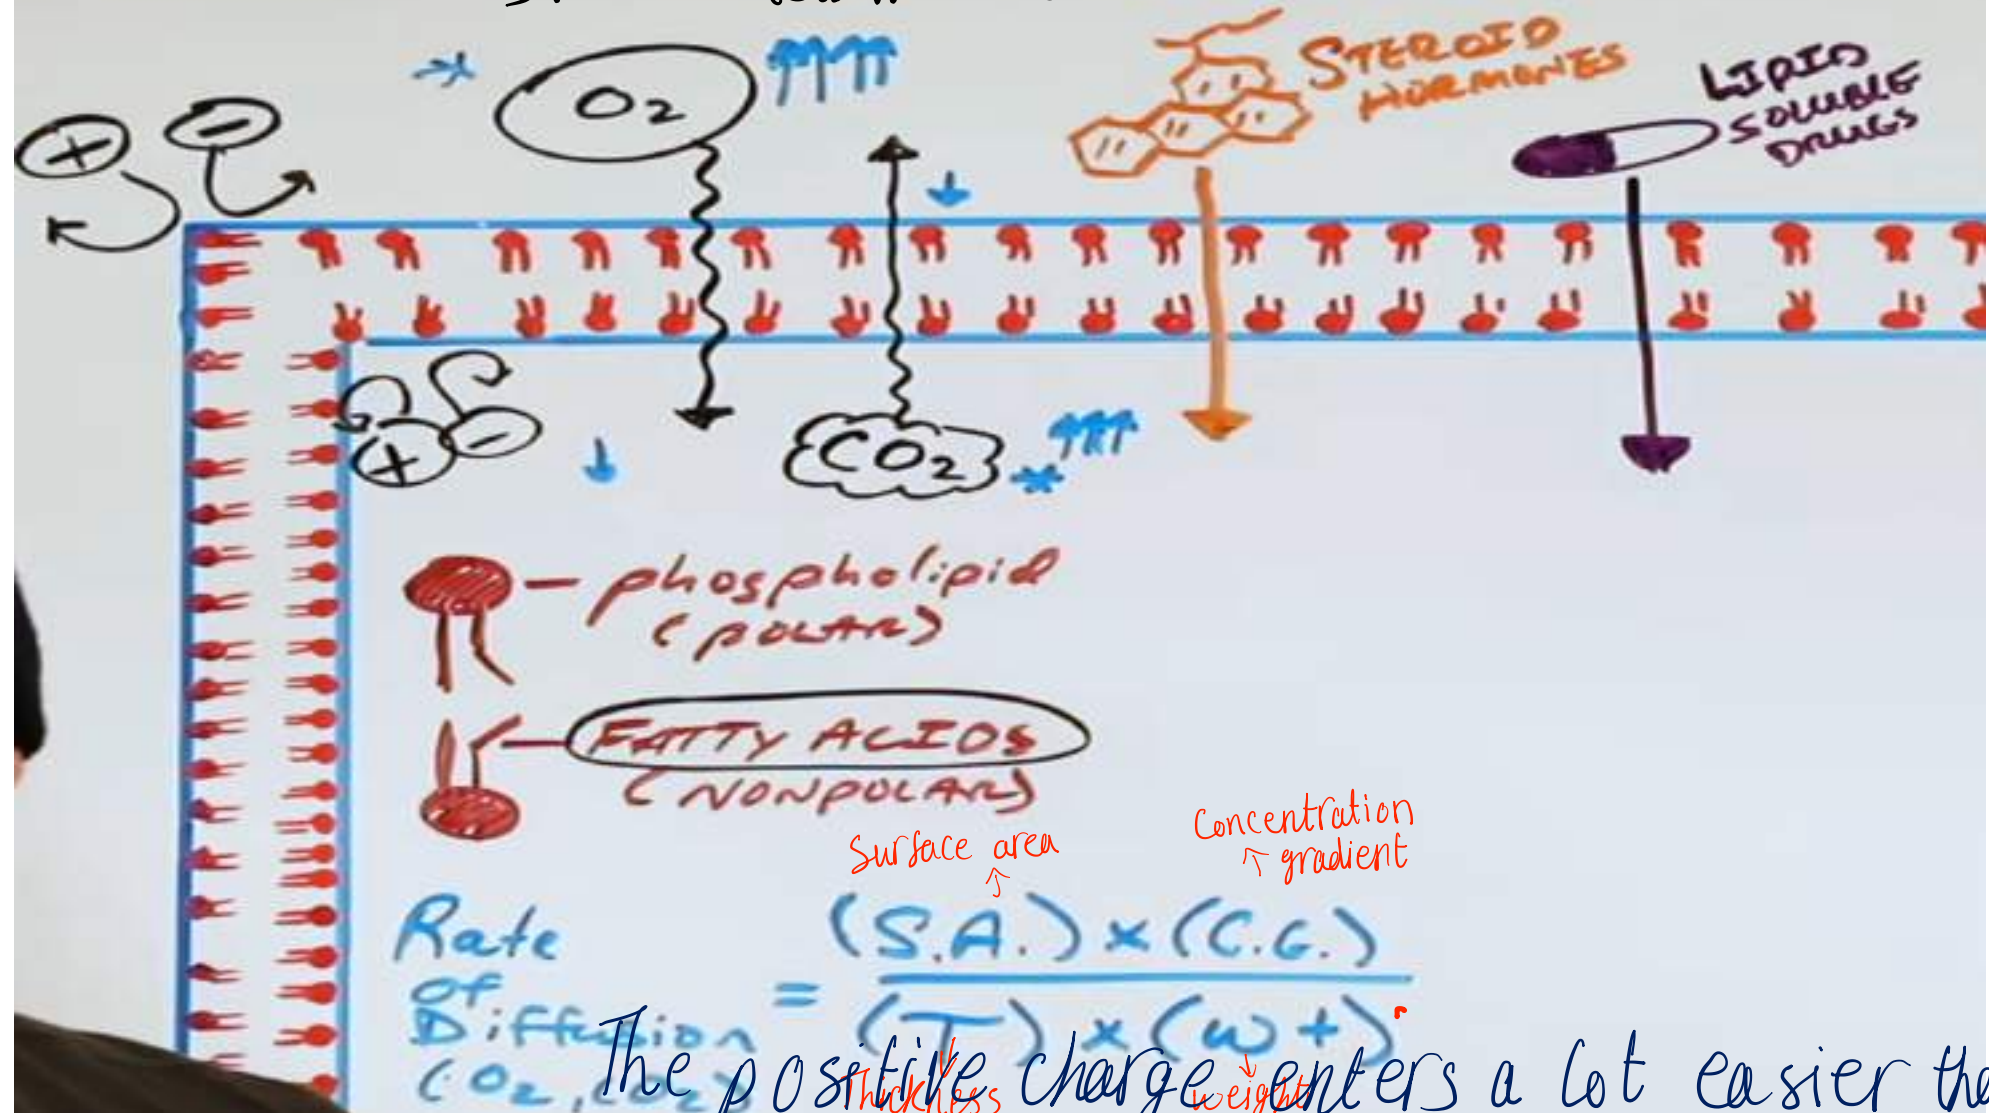 +
-
O2
STEROID
HORMONES
LIPID
SOLUBLE
DRUGS
+
-
CO2
phospholipid
(POLAR)
FATTY ACIDS
(NONPOLAR)
Surface area
Concentration
gradient
Rate
of
Diffusion
(O2, CO2)
=
(S.A.) x (C.G.)
(T) x (wt)
Thickness
weight
The positive charge enters a lot easier